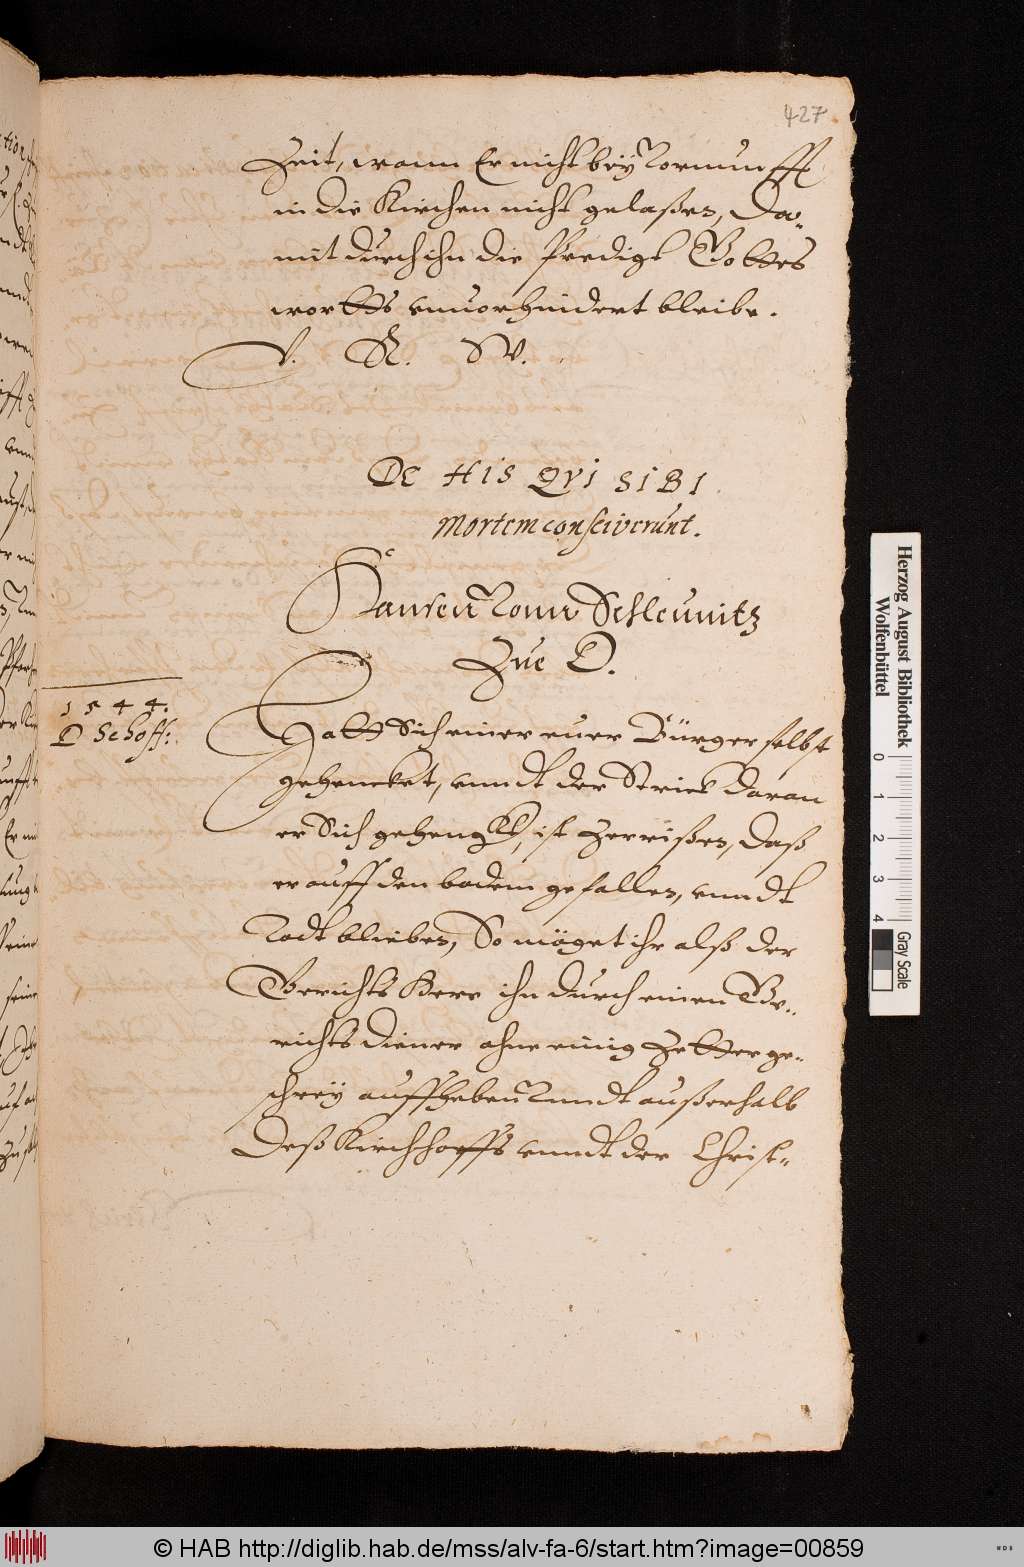 427
Zeit, wann Er nicht bey Vornunfft
in die Kirchen nicht gelaßen, Da„
mit durch ihn die Predigt Gottes
wortts vnuorhindert bleibe.
V. R. W.
DE HIS QVI SIBI
Mortem consciverunt.
Hansen Vonn Schleunitz
Zue D.
1544.
D Schoff:
Hatt Sich einer euer Bürger selbst
gehencket, vnndt der Strick daran
er Sich gehengkt, ist Zerrißen, Daß
er auff den bodem gefallen, vnndt
Todt blieben, So möget ihr alß der
Gerichts Herr ihn durch einen Ge„
richts diener ohne einig Zetterge„
schrey auffheben Vnndt außerhalb
Deß Kirchhoffs vnndt der Christ„
Herzog August Bibliothek
Wolfenbüttel
0 1 2 3 4
Gray Scale
© HAB http://diglib.hab.de/mss/alv-fa-6/start.htm?image=00859